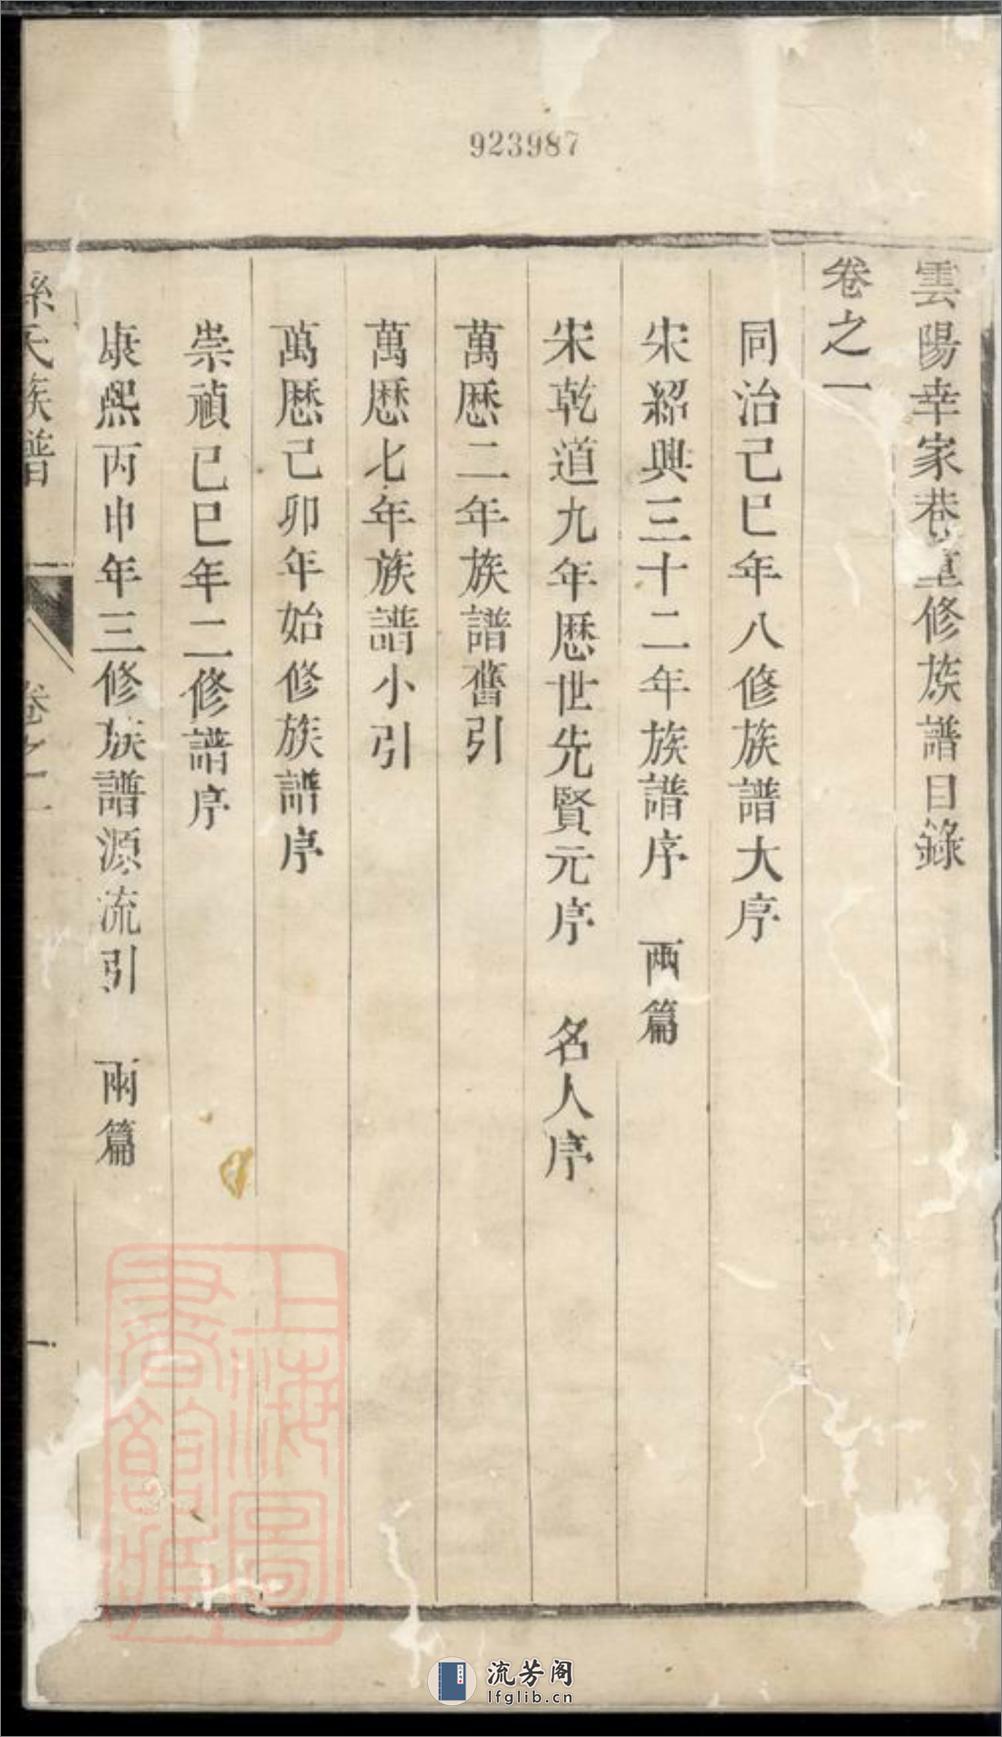 923987
雲陽幸家巷重修族譜目錄
卷之一
同治己巳年八修族譜大序
宋紹興三十二年族譜序 兩篇
宋乾道九年歷世先賢元序 名人序
萬歷二年族譜舊引
萬歷七年族譜小引
萬歷己卯年始修族譜序
崇禎己巳年二修譜序
康熙丙申年三修族譜源流引 兩篇
孫氏族譜 卷之一 一
上海圖書館藏
流芳阁
lfglib.cn